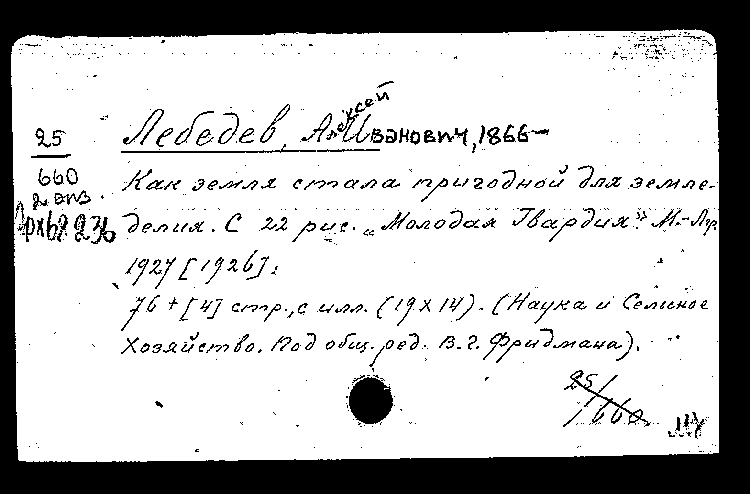 25
660
2 экз.
Лебедев, Алексей Иванович, 1866-
Как земля стала пригодной для земле-
делия. С 22 рис. „Молодая Гвардия". М.-Лгр.
1927 [1926].
76 + [4] стр., с илл. (19 x 14). (Наука и Сельское
Хозяйство. Под общ. ред. В. Г. Фридмана).
25/
660